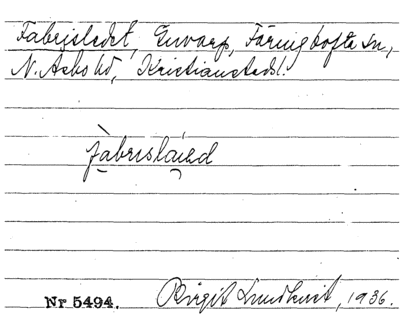 Fabrisledet, Envarp, Färingtofta sn,
N. Åsbo hd, Kristianstads l.
Nr 5494. Birgit Lundkvist, 1936.